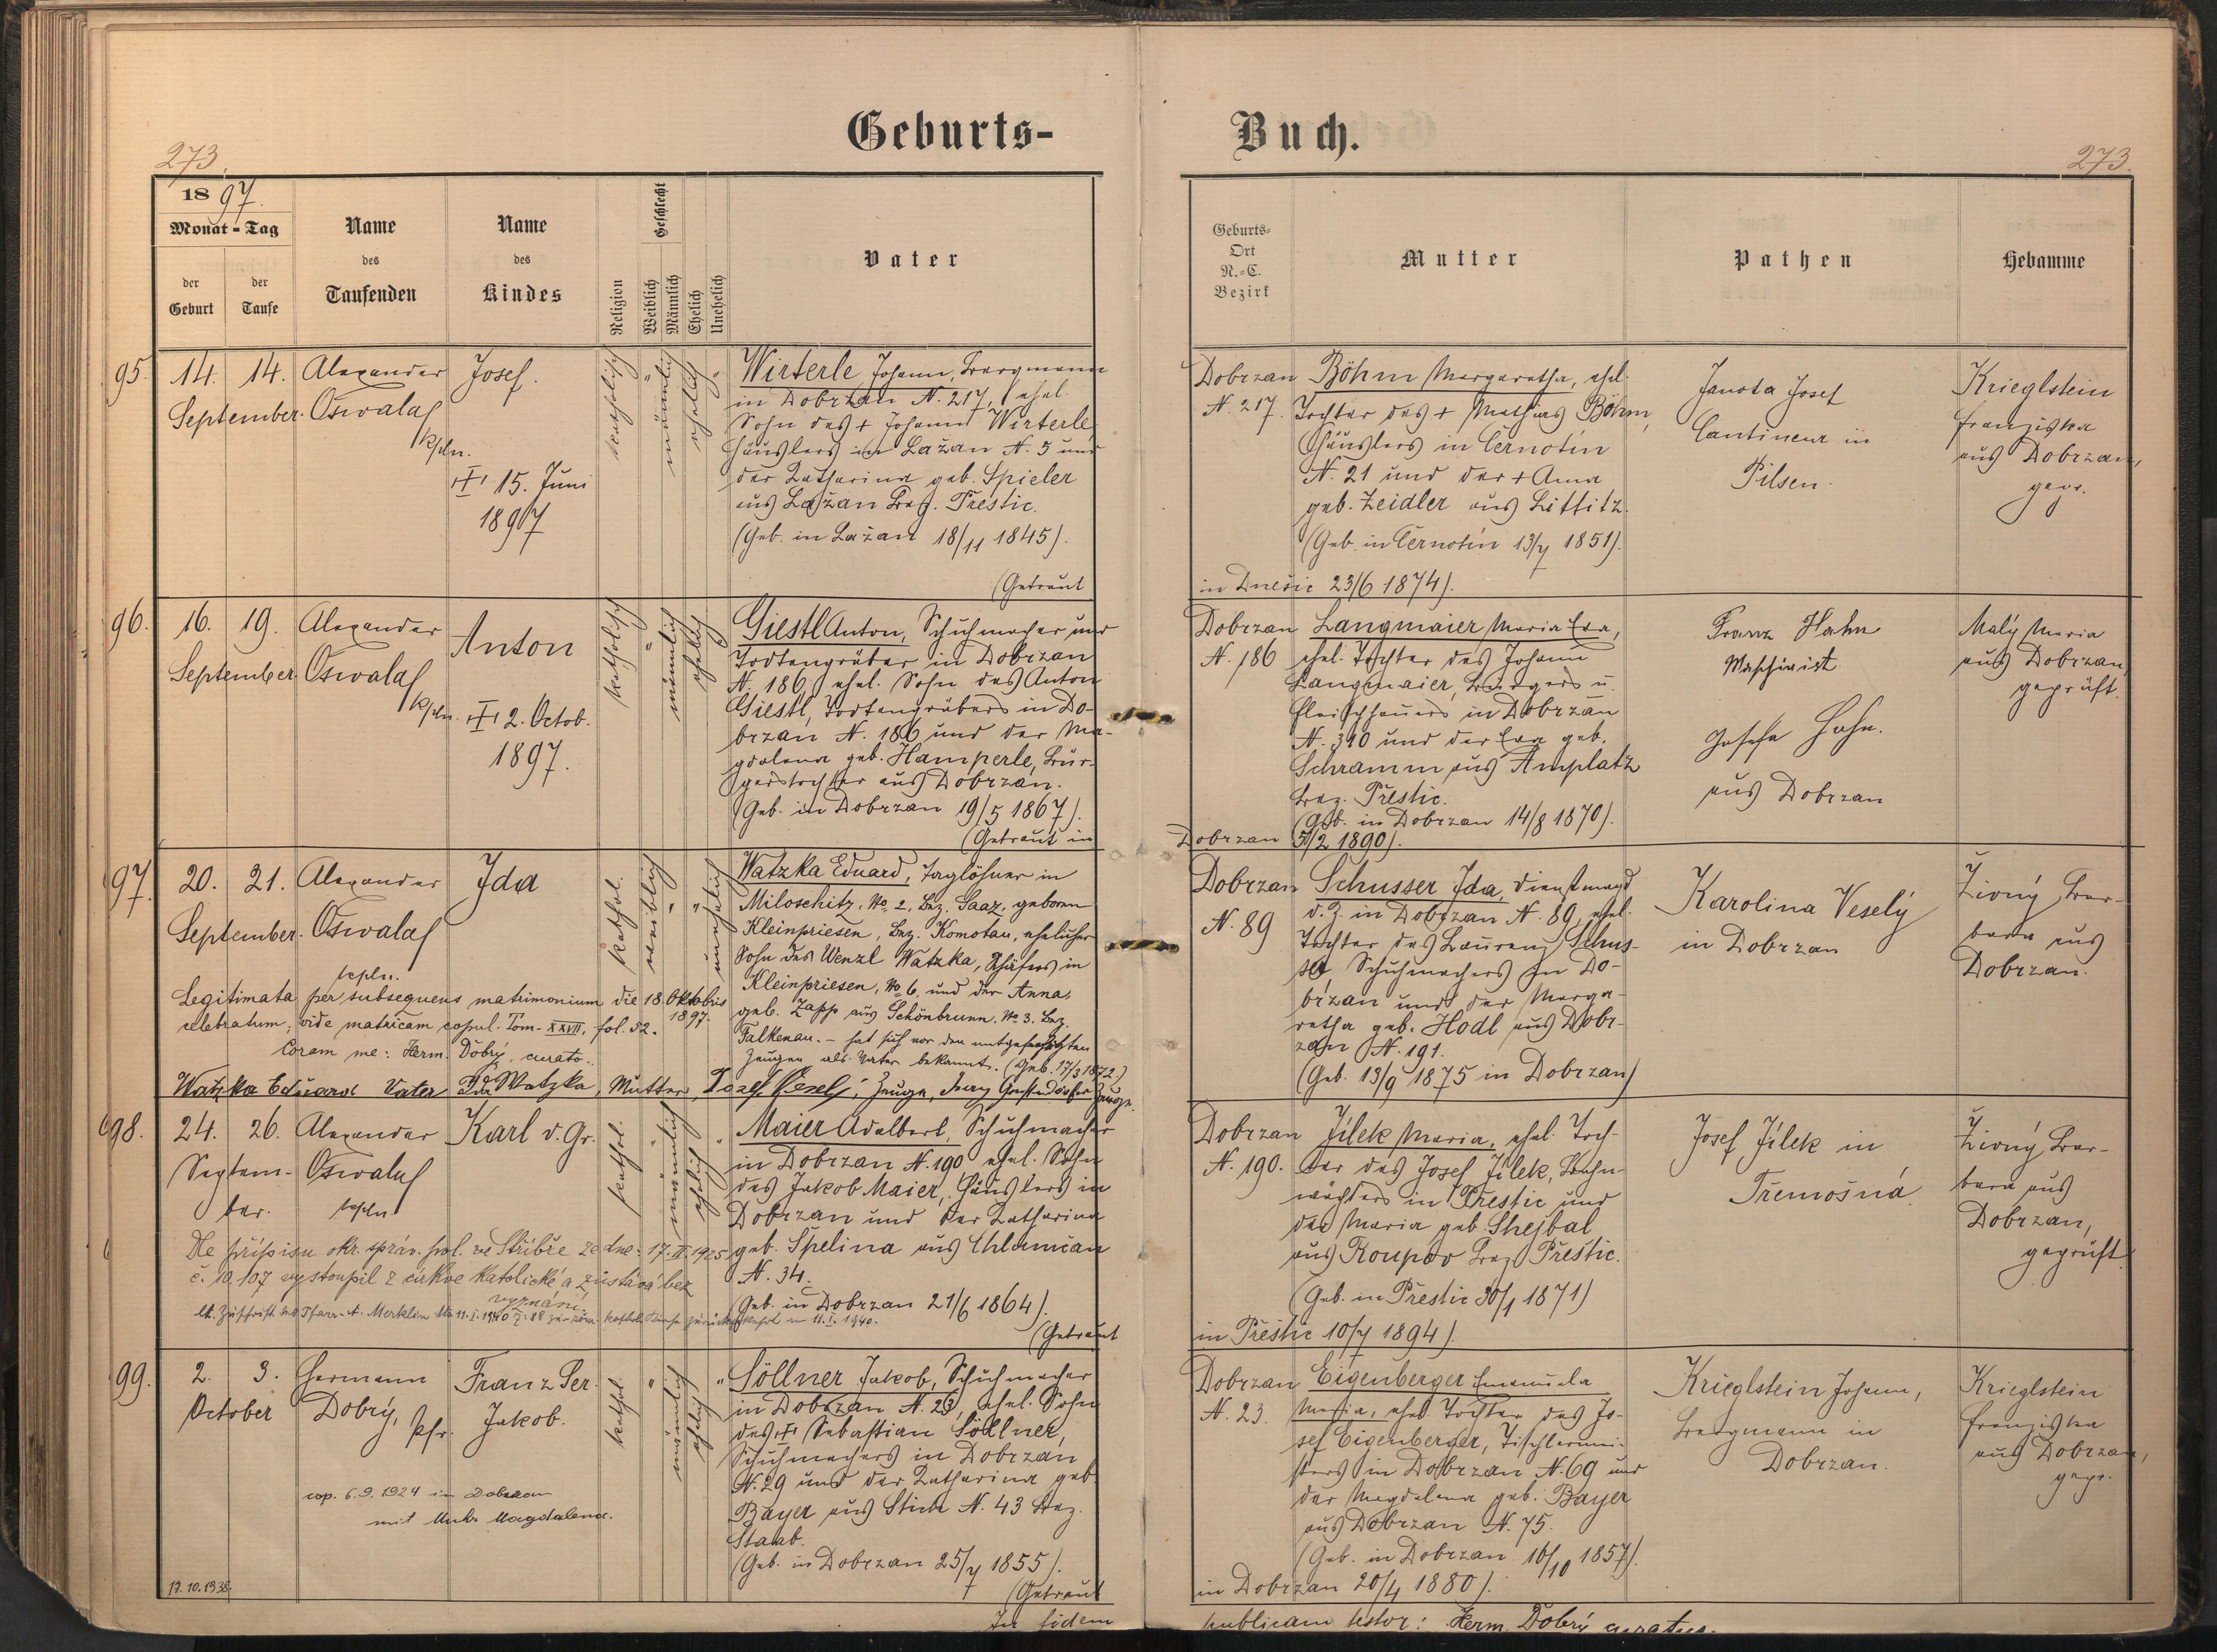 Geburts-
Buch.
273.
273.
1897.
Monat - Tag
der Geburt
der Taufe
Name des Taufenden
Name des Kindes
Religion
Geschlecht
Weiblich
Männlich
Ehelich
Unehelich
Vater
Geburts-
Ort
N.-C.
Bezirk
Mutter
Pathen
Hebamme
95.
14. 14.
September.
Alexander
Oswald
kpln.
Josef.
15. Juni
1897
katholisch
männlich
ehelich
Wirterle Johann, Bergmann
in Dobrzan N. 217, ehel.
Sohn des + Johann Wirterle,
Häuslers in Lažan N. 5 und
der Katharina geb. Spieler
aus Lažan Bez. Prestic.
(Geb. in Lažan 18/11 1845).
(Getraut
Dobrzan
N. 217.
Böhm Margaretha, ehel.
Tochter des + Mathias Böhm,
Häuslers in Černotin
N. 21 und der + Anna
geb. Zeidler aus Littitz.
(Geb. in Černotin 13/7 1851).
in Dnešic 23/6 1874).
Janota Josef
Cantineur in
Pilsen.
Krieglstein
Franziska
aus Dobrzan,
gepr.
96.
16. 19.
September.
Alexander
Oswald
kpln.
Anton
2. Octob.
1897.
katholisch
männlich
ehelich
Giestl Anton, Schuhmacher und
Todtengräber in Dobrzan
N. 186, ehel. Sohn des Anton
Giestl, Todtengräbers in Do-
brzan N. 186 und der Ma-
gdalena geb. Hamperle, Bür-
gerstochter aus Dobrzan.
(Geb. in Dobrzan 19/5 1867).
(Getraut in
Dobrzan
N. 186
Langmaier Maria Eva,
ehel. Tochter des Johann
Langmaier, Bürgers u.
Fleischhauers in Dobrzan
N. 310 und der Eva geb.
Schramm aus Amplatz
Bez. Přestic.
(Geb. in Dobrzan 14/8 1870).
Dobrzan 5/2 1890).
Franz Hahn
Maschinist
Josefa Hahn.
aus Dobrzan
Malý Maria
aus Dobrzan,
geprüft.
97.
20. 21.
September.
Alexander
Oswald
kpln.
Ida
kathol.
weiblich
unehelich
Watzka Eduard, Taglöhner in
Miloschitz, No 2, Bez. Saaz, geboren
Kleinpriesen, Bez. Komotau, ehelicher
Sohn des Wenzl Watzka, Schäfers in
Kleinpriesen, No 6, und der Anna,
geb. Zapp aus Schönbrunn, No 3. Bez.
Falkenau. – hat sich vor den mitgefertigten
Zeugen als Vater bekannt. (Geb. 17/3 1872.)
Legitimata per subsequens matrimonium die 18. Oktobris
1897.
celebratum; vide matricam copul. Tom. XXVII, fol. 52.
Coram me: Herm. Dobrý, curato.
Watzka Eduard Vater Ida Watzka, Mutter, Josef Veselý, Zeuge, Zeuge.
Dobrzan
N. 89
Schusser Ida, Dienstmagd
d. Z. in Dobrzan N. 89, ehel.
Tochter des Laurenz Schus-
ser Schuhmachers in Do-
brzan und der Marga-
retha geb. Hodl aus Dobr-
zan N. 191.
(Geb. 13/9 1875 in Dobrzan)
Karolina Veselý
in Dobrzan
Živný Bar-
bara aus
Dobrzan.
98.
24. 26.
Septem-
ber.
Alexander
Oswald
kpln.
Karl v. Gr.
kathol.
männlich
ehelich
Maier Adalbert, Schuhmacher
in Dobrzan N. 190, ehel. Sohn
des Jakob Maier, Häuslers in
Dobrzan und der Katharina
geb. Spelina aus Chlumčan
N. 34.
(Geb. in Dobrzan 21/6 1864).
(Getraut
Dle přípisu okr. správ. pol. ve Stříbře ze dne: 17. II. 1925
č. 10.107 vystoupil z církve katolické a zůstává bez
vyznání.
lt. Zuschrift des Pfarr-A. Merklin
11. I. 1940.
Dobrzan
N. 190.
Jílek Maria, ehel. Toch-
ter des Josef Jílek, Bahn-
wächters in Přestic und
der Maria geb. Shejbal
aus Roupov Bez. Přestic.
(Geb. in Přestic 30/1 1871)
in Přestic 10/7 1894).
Josef Jílek in
Třemošná.
Živný Bar-
bara aus
Dobrzan,
geprüft
99.
2. 3.
October
Hermann
Dobrý,
Pfr.
Franz Ser.
Jakob.
kathol.
männlich
ehelich
Söllner Jakob, Schuhmacher
in Dobrzan N. 23, ehel. Sohn
des + Sebastian Söllner,
Schuhmachers in Dobrzan
N. 29 und der Katharina geb.
Bayer aus Stich N. 43 Bez.
Staab.
(Geb. in Dobrzan 25/7 1855).
(Getraut
cop. 6.9.1924 in Dobrzan
mit Magdalena.
17.10.1938
Dobrzan
N. 23.
Eigenberger Emanuela
Maria, ehel. Tochter des Jo-
sef Eigenberger, Tischlermei-
sters in Dobrzan N. 69 und
der Magdalena geb. Bayer
aus Dobrzan N. 75.
(Geb. in Dobrzan 16/10 1857).
in Dobrzan 20/4 1880).
Krieglstein Johann,
Bergmann in
Dobrzan.
Krieglstein
Franziska
aus Dobrzan,
gepr.
In fidem
publicam testor: Herm. Dobrý curatus.